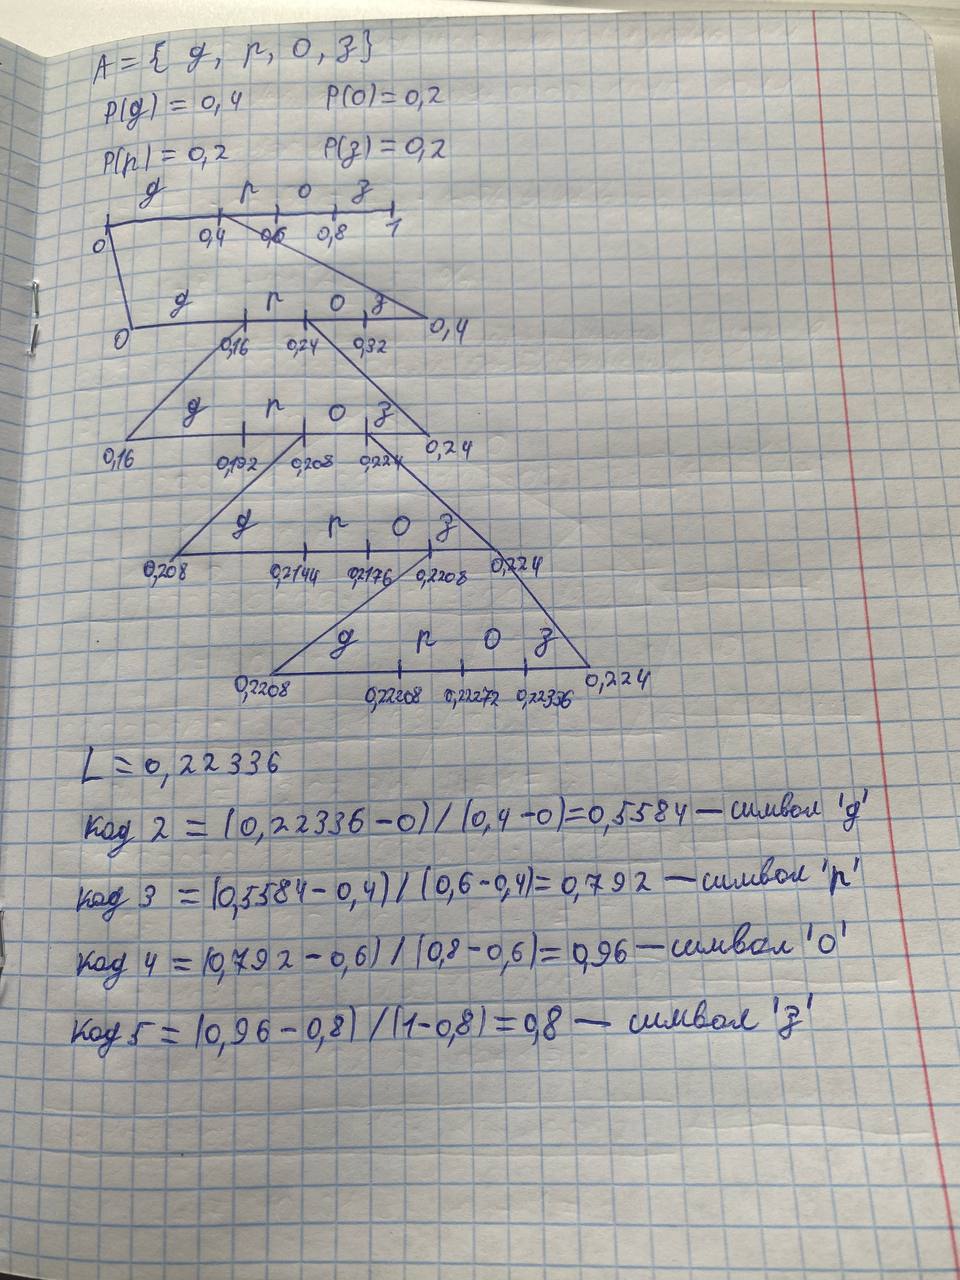 A = { д, р, о, з }
P(д) = 0,4 P(о) = 0,2
P(р) = 0,2 P(з) = 0,2
д р о з
0 0,4 0,6 0,8 1
д р о з
0 0,16 0,24 0,32 0,4
д р о з
0,16 0,192 0,208 0,224 0,24
д р о з
0,208 0,2144 0,2176 0,2208 0,224
д р о з
0,2208 0,22208 0,22272 0,22336 0,224
L = 0,22336
Код 2 = (0,22336 - 0) / (0,4 - 0) = 0,5584 — символ 'д'
Код 3 = (0,5584 - 0,4) / (0,6 - 0,4) = 0,792 — символ 'р'
Код 4 = (0,792 - 0,6) / (0,8 - 0,6) = 0,96 — символ 'о'
Код 5 = (0,96 - 0,8) / (1 - 0,8) = 0,8 — символ 'з'